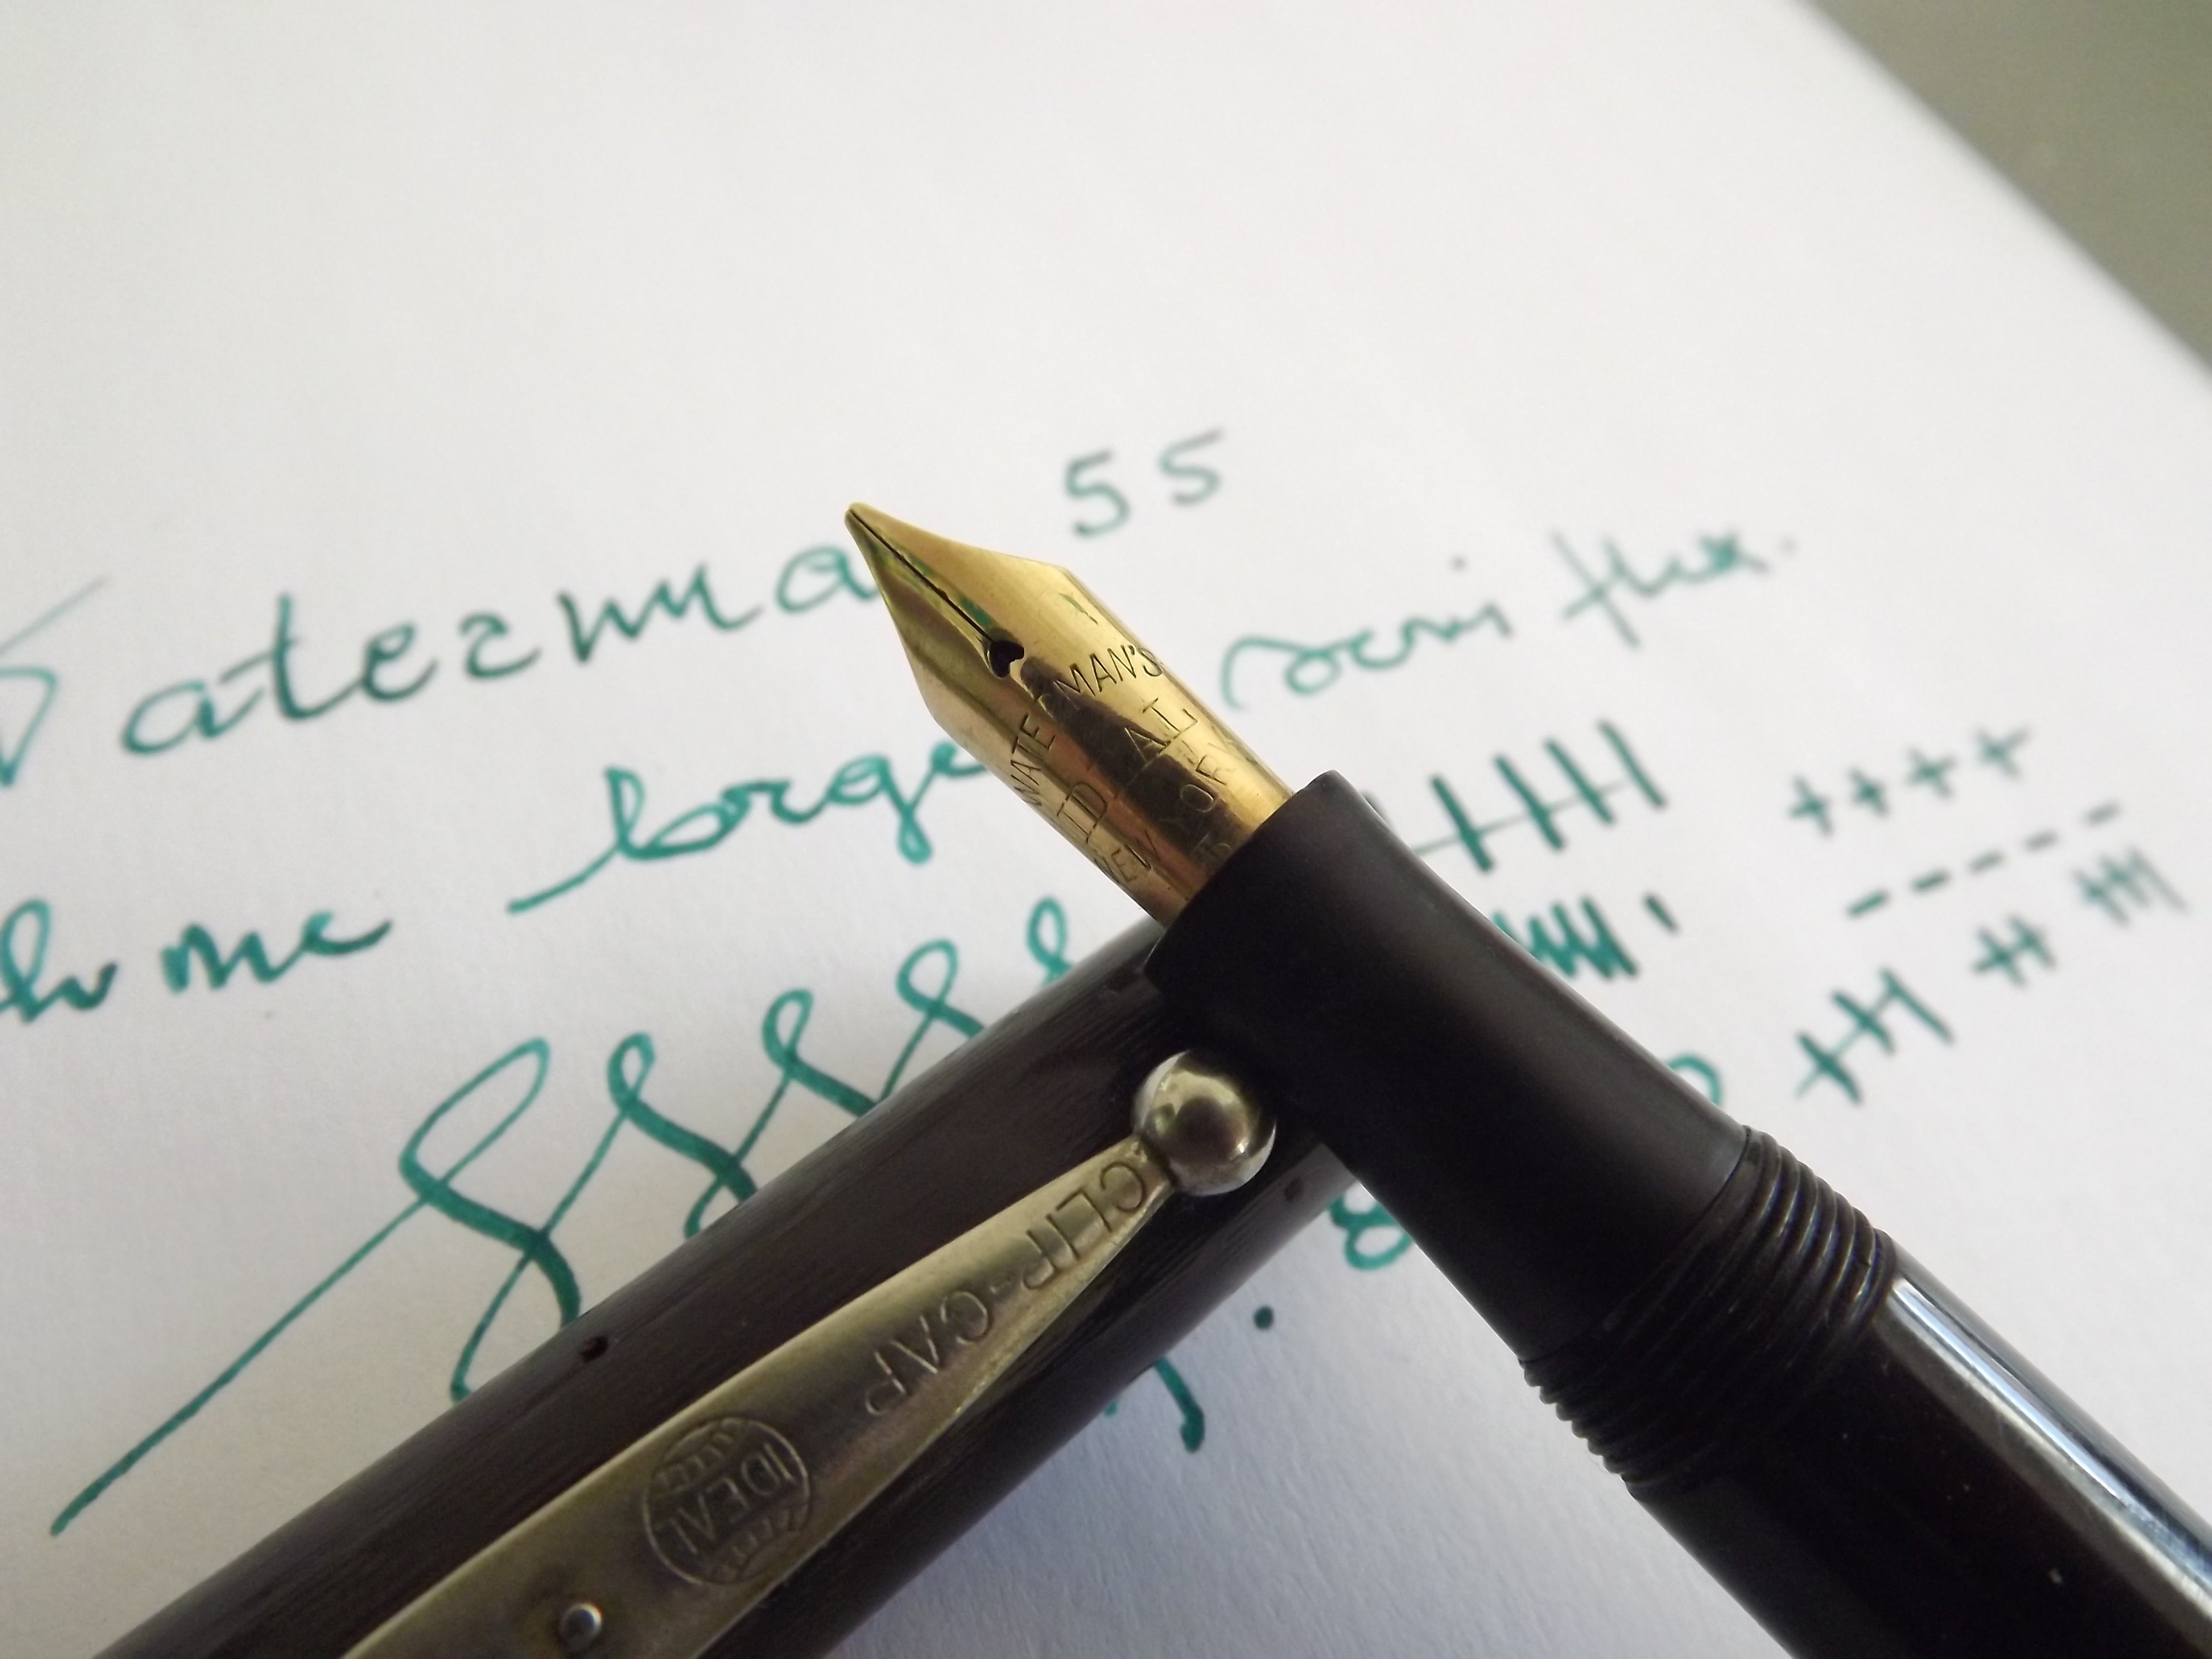 Waterma 55
semi flex.
large
WATERMAN'S
IDEAL
NEW YORK
CLIP-CAP
IDEAL